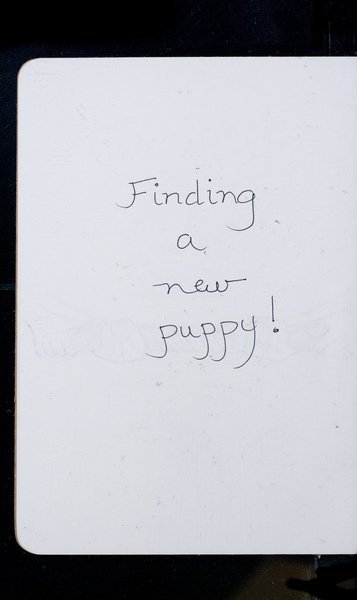 Finding
a
new
puppy!